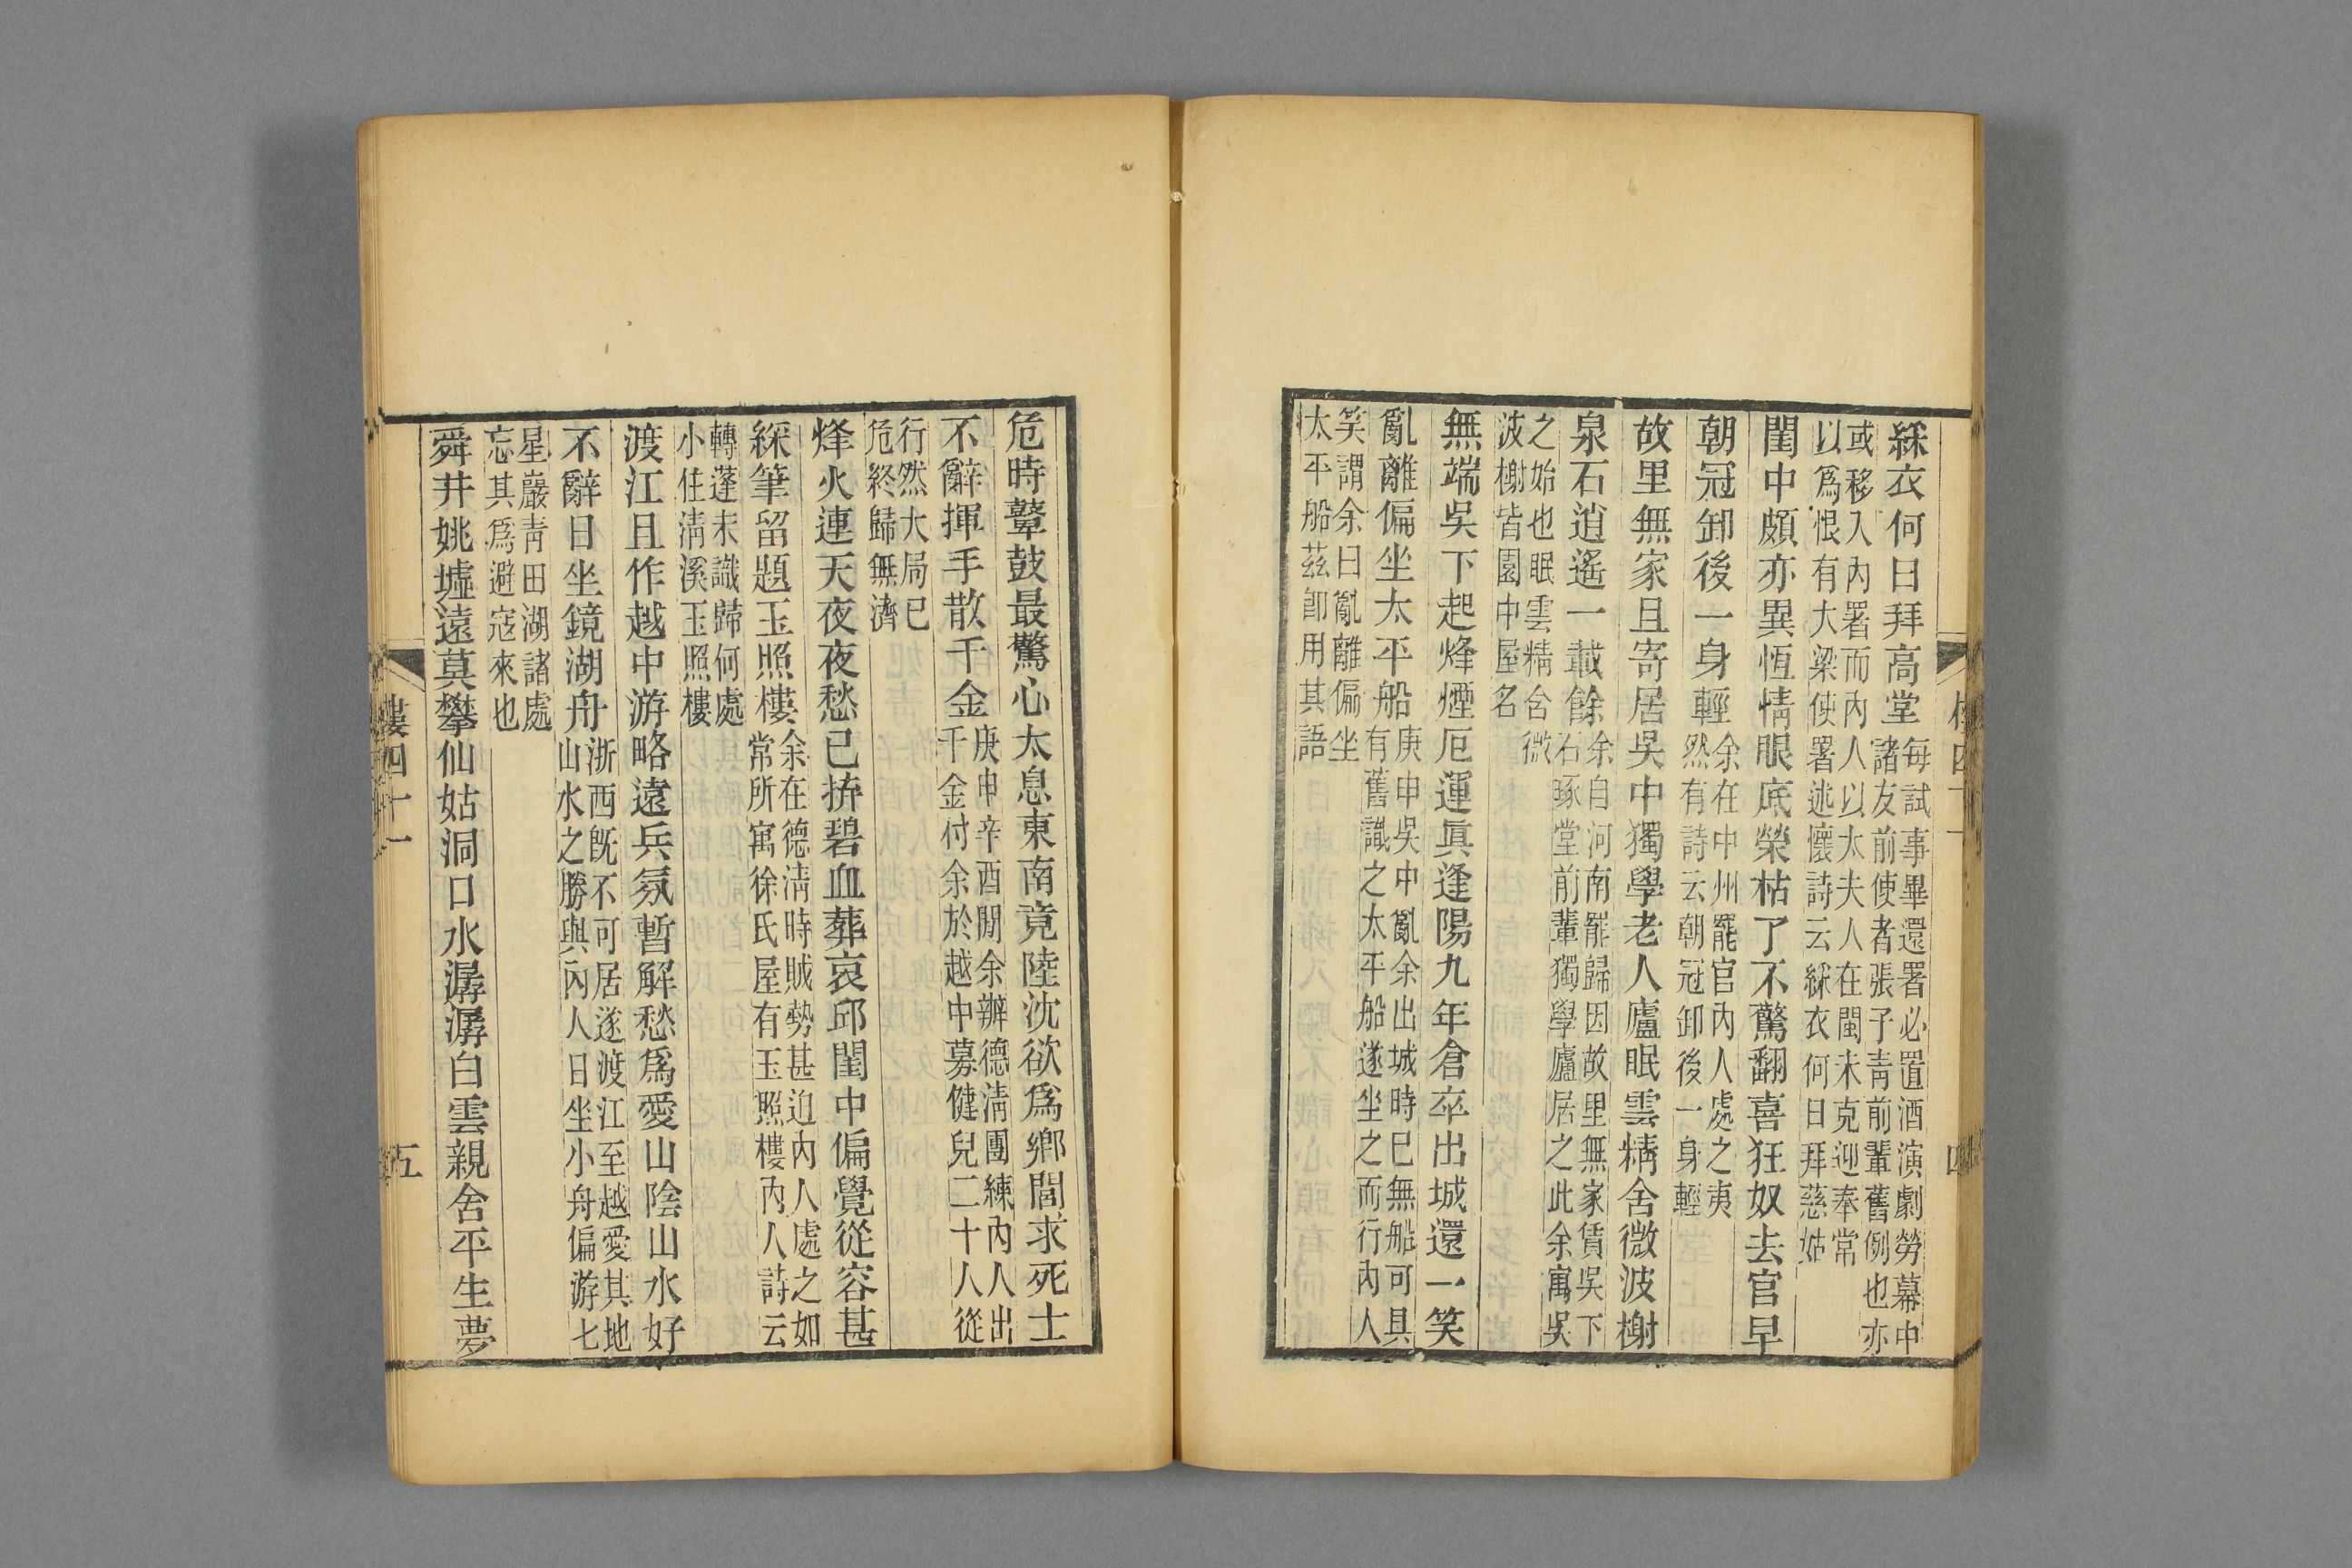 綵衣何日拜高堂每試事畢還署必置酒演劇勞幕中
諸友前使者張子靑前輩舊例也亦
或移入內署而內人以太夫人在閩未克迎奉常
以爲恨有大梁使署述懷詩云綵衣何日拜慈姑
閨中頗亦異恆情眼底榮枯了不驚翻喜狂奴去官早
朝冠卸後一身輕余在中州罷官內人處之夷
然有詩云朝冠卸後一身輕
故里無家且寄居吳中獨學老人廬眠雲精舍微波榭
泉石逍遙一載餘余自河南罷歸因故里無家賃吳下
石琢堂前輩獨學廬居之此余寓吳
之始也眠雲精舍微
波榭皆園中屋名
無端吳下起烽煙厄運眞逢陽九年倉卒出城還一笑
亂離偏坐太平船庚申吳中亂余出城時已無船可具
有舊識之太平船遂坐之而行內人
笑謂余曰亂離偏坐
太平船茲卽用其語
四
危時鼙鼓最驚心太息東南竟陸沈欲爲鄉閭求死士
不辭揮手散千金庚申辛酉閒余辦德淸團練內人出
千金付余於越中募健兒二十人從
行然大局已
危終歸無濟
烽火連天夜夜愁已拚碧血葬哀邱閨中偏覺從容甚
綵筆留題玉照樓余在德淸時賊勢甚迫內人處之如
常所寓徐氏屋有玉照樓內人詩云
轉蓬未識歸何處
小住淸溪玉照樓
渡江且作越中游略遠兵氛暫解愁爲愛山陰山水好
不辭日坐鏡湖舟浙西旣不可居遂渡江至越愛其地
山水之勝與內人日坐小舟徧游七
星巖靑田湖諸處
忘其爲避寇來也
舜井姚墟遠莫攀仙姑洞口水潺潺白雲親舍平生夢
樓四十一
五